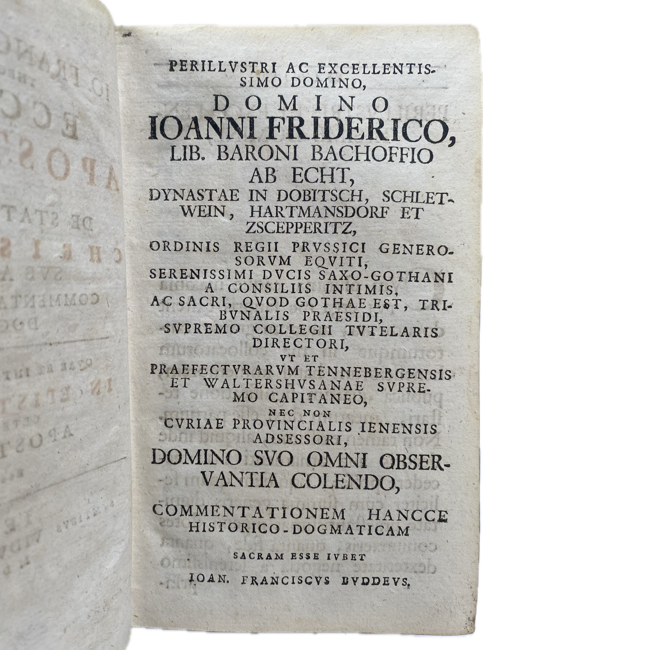 PERILLVSTRI AC EXCELLENTIS-
SIMO DOMINO,
DOMINO
IOANNI FRIDERICO,
LIB. BARONI BACHOFFIO
AB ECHT,
DYNASTAE IN DOBITSCH, SCHLET-
WEIN, HARTMANSDORF ET
ZSCEPPERITZ,
ORDINIS REGII PRVSSICI GENERO-
SORVM EQVITI,
SERENISSIMI DVCIS SAXO-GOTHANI
A CONSILIIS INTIMIS,
AC SACRI, QVOD GOTHAE EST, TRI-
BVNALIS PRAESIDI,
SVPREMO COLLEGII TVTELARIS
DIRECTORI,
VT ET
PRAEFECTVRARVM TENNEBERGENSIS
ET WALTERSHVSANAE SVPRE-
MO CAPITANEO,
NEC NON
CVRIAE PROVINCIALIS IENENSIS
ADSESSORI,
DOMINO SVO OMNI OBSER-
VANTIA COLENDO,
COMMENTATIONEM HANCCE
HISTORICO-DOGMATICAM
SACRAM ESSE IVBET
IOAN. FRANCISCVS BVDDEVS,